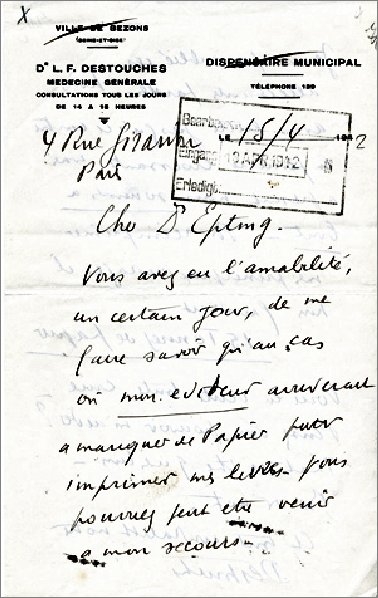 X
VILLE DE BEZONS
(SEINE-ET-OISE)
Dr L. F. DESTOUCHES
MÉDECINE GÉNÉRALE
CONSULTATIONS TOUS LES JOURS
DE 14 A 15 HEURES
DISPENSAIRE MUNICIPAL
TÉLÉPHONE 139
LE 15/4 1942
Bearbeiter
Eingang 18 APR 1942
Erledigt
4 Rue Girardon
Paris
Cher Dr Epting.
Vous avez eu l'amabilité,
un certain jour, de me
faire savoir qu'au cas
où mon éditeur arriverait
a manquer de Papier pour
imprimer mes livres vous
pourriez peut être venir
a mon secours.